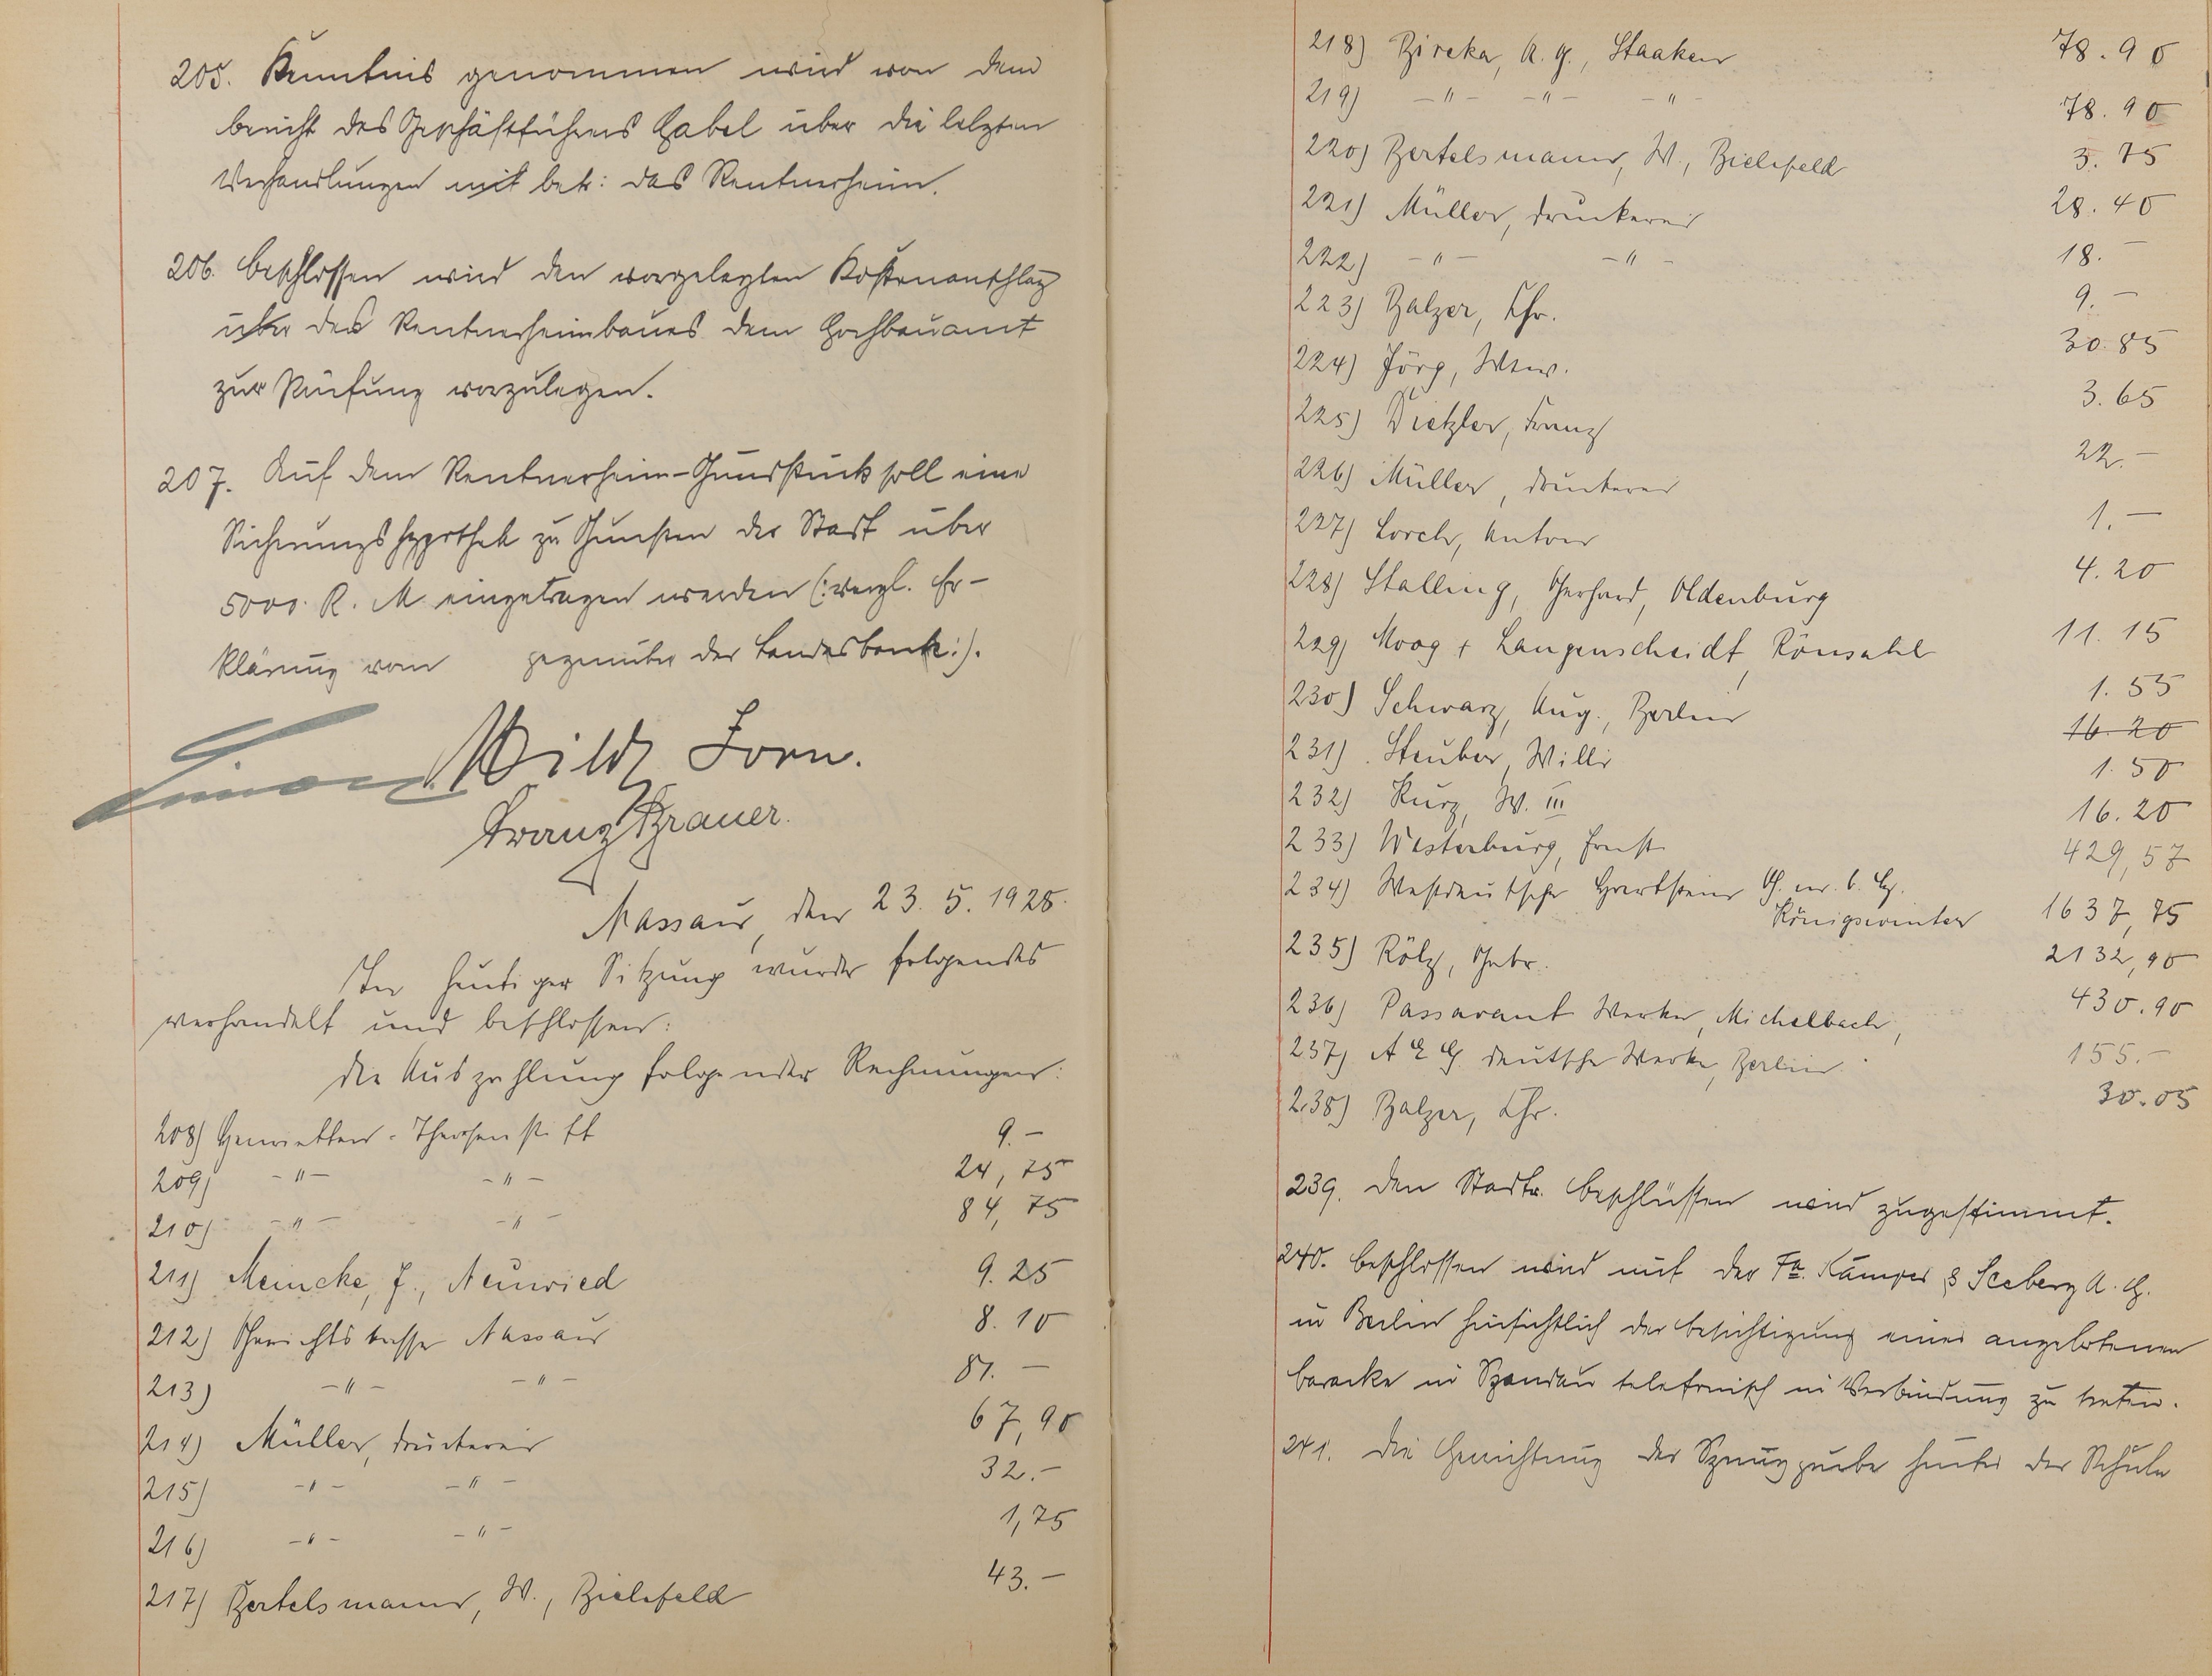 205. Kenntnis genommen wird von dem
bericht des Geschäftführers Gabel über die letzten
Verhandlungen mit betr: das Rentnerheim.
206. beschlossen wird den vorgelegten Kostenanschlag
über des Rentnerheimbaues dem Hochbauamt
zur Prüfung vorzulegen.
207. Auf dem Rentnerheim-Grundstück soll eine
Sicherungshypothek zu Gunsten der Stadt über
5000. R. M eingetragen werden (: vergl. Er-
klärung vom gegenüber der Landesbank :).
Wild Forn.
Franz Brauer.
Nassau, den 23. 5. 1928.
In heutiger Sitzung wurde folgendes
verhandelt und beschlossen:
die Auszahlung folgender Rechnungen:
208) Henrietten-Theresenstift 9.-
209) -"- -"- 24,75
210) -"- -"- 84,75
211) Meincke, J., Neuwied 9.25
212) Gerichtskasse Nassau 8.10
213) -"- -"- 81.-
214) Müller, druckerei 67,90
215) -"- -"- 32.-
216) -"- -"- 1,75
217) Bertelsmann, W., Bielefeld 43.-
218) Bireka, A. G., Staaken 78.90
219) -"- -"- -"- 78.90
220) Bertelsmann, W., Bielefeld 3.75
221) Müller, druckerei 28.40
222) -"- -"- 18.-
223) Balzer, Chr. 9.-
224) Jörg, Wtw. 30.85
225) Dietzler, Franz 3.65
226) Müller, druckerei 22.-
227) Lorch, Anton 1.-
228) Stalling, Gerhard, Oldenburg 4.20
229) Moog + Langenscheidt, Rönsahl 11.15
230) Schwarz, Aug., Berlin 1.55
231) Steuber, Willi 16.20
232) Kurz, W. III 1.50
233) Westerburg, Ernst 16.20
234) Westdeutsche Hartstein G. m. b. H. 429,57
Königswinter 1637,75
235) Rölz, Gebr. 2132,90
236) Passavant Werke, Michelbach, 430.90
237) A E G deutsche Werke, Berlin 155.-
238) Balzer, Chr. 30.05
239. den Stadtr. beschlüssen wird zugestimmt.
240. beschlossen wird mit der Fa. Kämper & Seeberg A. G.
in Berlin hinsichtlich der besichtigung einer angebotenen
baracke in Spandau telefonisch in Verbindung zu treten.
241. die Herrichtung der Sprunggrube hinter der Schule